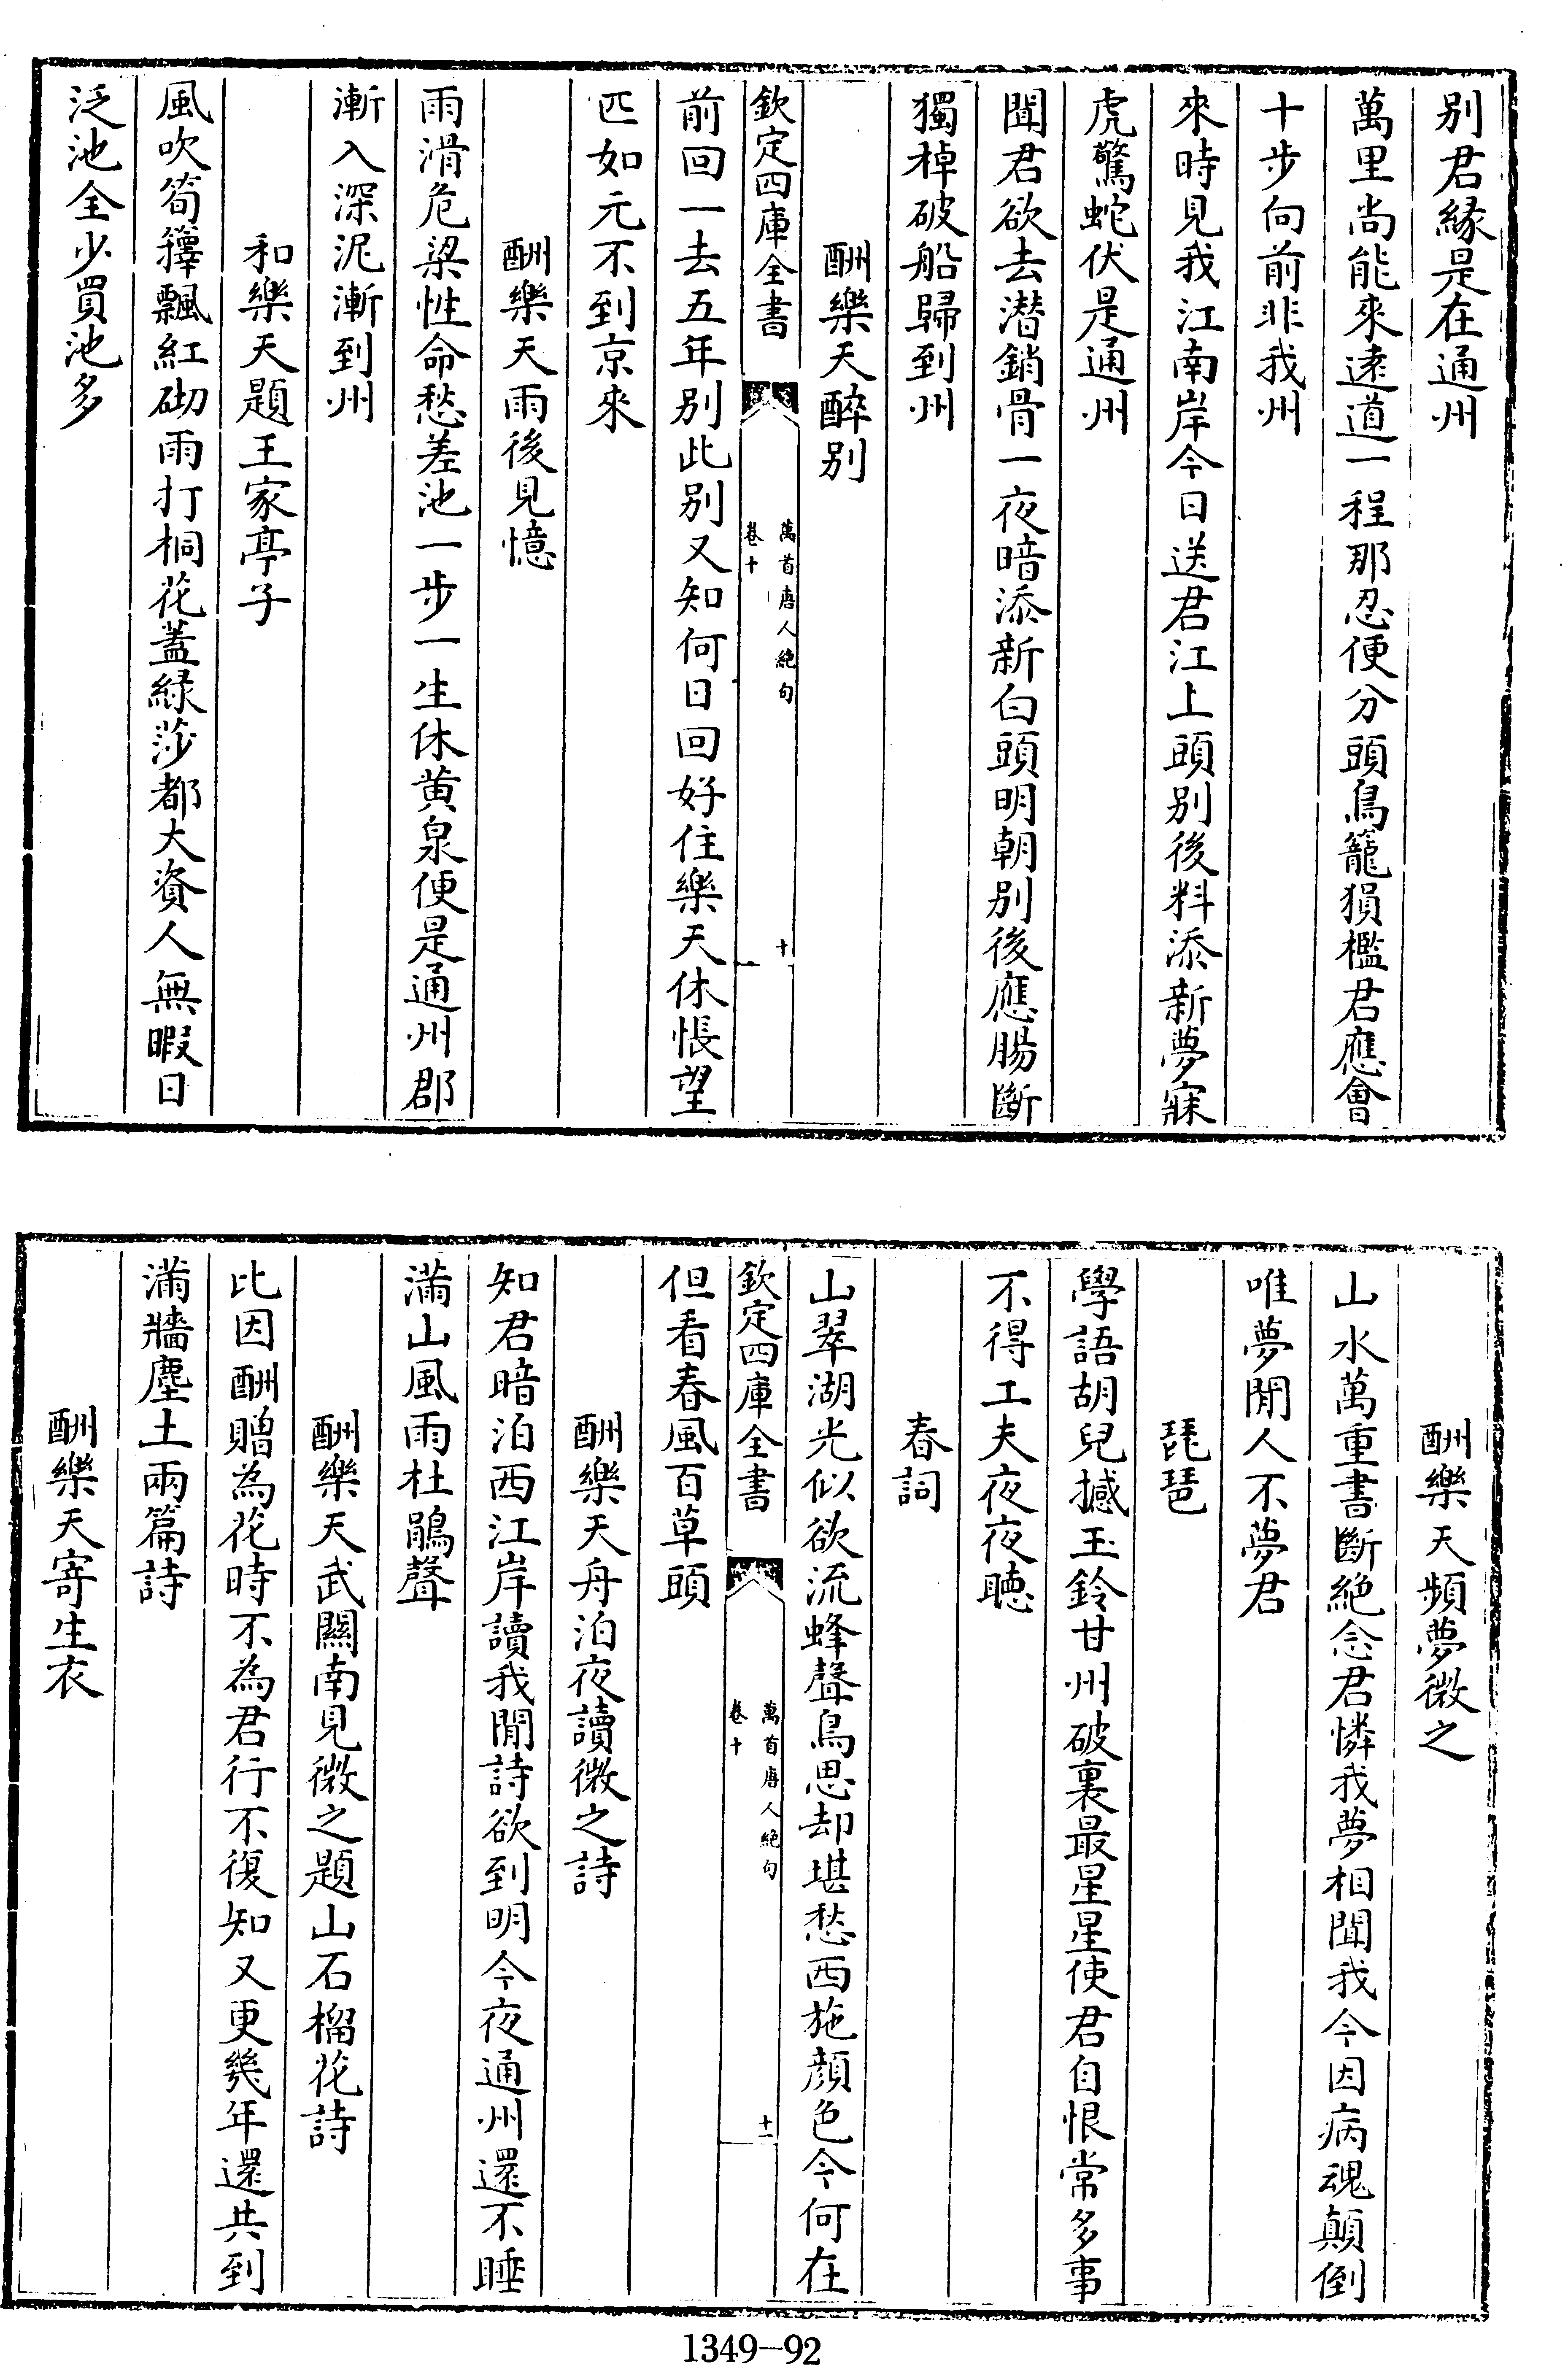 别君緣是在通州
萬里尚能來逺道一程那忍便分頭鳥籠猿檻君應㑹
十步向前非我州
來時見我江南岸今日送君江上頭别後料添新夢寐
虎驚蛇伏是通州
聞君欲去潛銷骨一夜暗添新白頭明朝别後應腸斷
獨棹破船歸到州
酬樂天醉别
欽定四庫全書
萬首唐人絶句
卷十
十
前回一去五年别此别又知何日回好住樂天休悵望
匹如元不到京來
酬樂天雨後見憶
雨滑危梁性命愁差池一步一生休黄泉便是通州郡
漸入深泥漸到州
和樂天題王家亭子
風吹筍籜飄紅砌雨打桐花葢緑莎都大資人無暇日
泛池全少買池多
酬樂天頻夢微之
山水萬重書斷絶念君憐我夢相聞我今因病魂顛倒
唯夢閒人不夢君
琵琶
學語胡兒撼玉鈴甘州破裏最星星使君自恨常多事
不得工夫夜夜聽
春詞
山翠湖光似欲流蜂聲鳥思却堪愁西施顔色今何在
欽定四庫全書
萬首唐人絶句
卷十
十一
但看春風百草頭
酬樂天舟泊夜讀微之詩
知君暗泊西江岸讀我閒詩欲到明今夜通州還不睡
滿山風雨杜鵑聲
酬樂天武關南見微之題山石榴花詩
比因酬贈為花時不為君行不復知又更幾年還共到
滿牆塵土兩篇詩
酬樂天寄生衣
1349-92